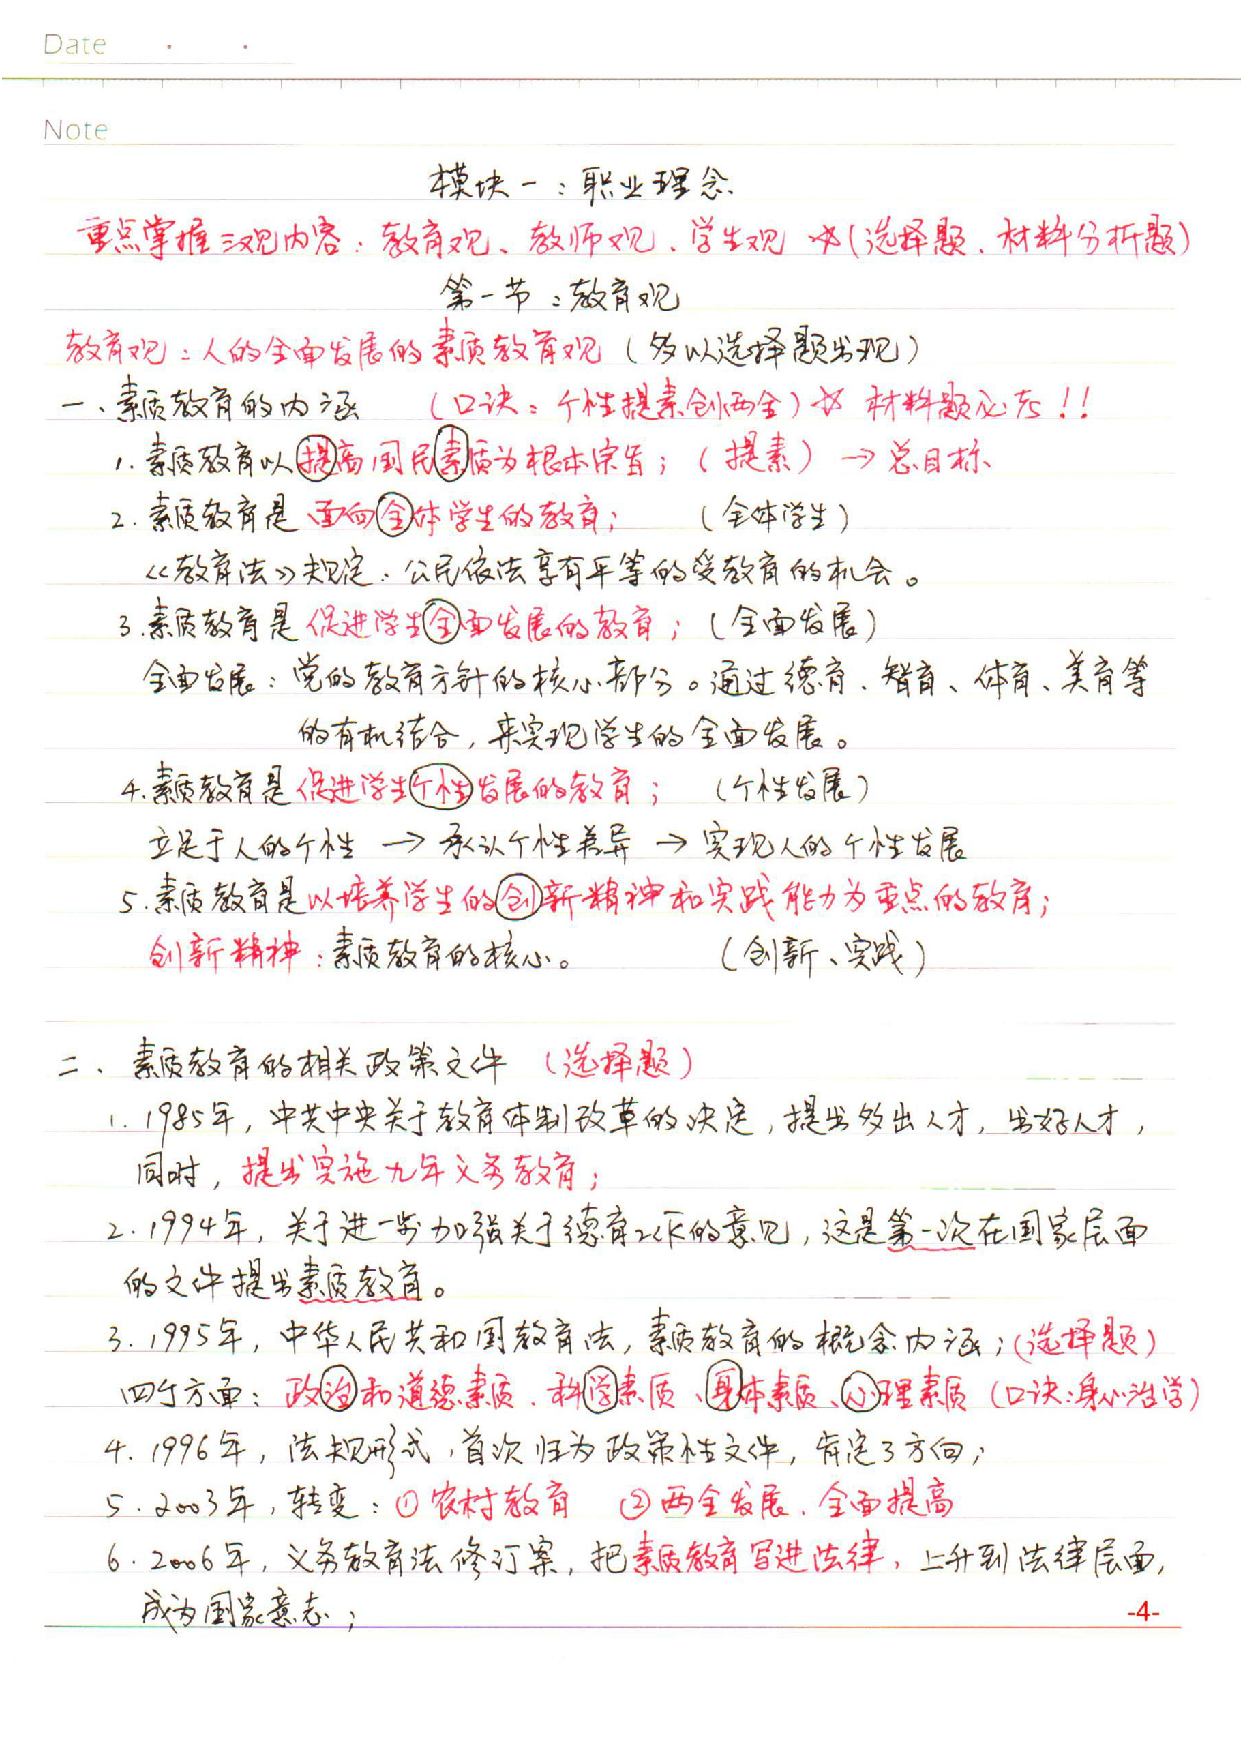 Date
Note
模块一：职业理念
重点掌握三观内容：教育观、教师观、学生观 (选择题、材料分析题)
第一节：教育观
教育观：人的全面发展的素质教育观（多以选择题出现）
一、素质教育的内涵 （口诀：个性提素创两全） 材料题必考！！
1. 素质教育以提高国民素质为根本宗旨；（提素）→总目标
2. 素质教育是面向全体学生的教育； （全体学生）
《教育法》规定：公民依法享有平等的受教育的机会。
3. 素质教育是促进学生全面发展的教育；（全面发展）
全面发展：党的教育方针的核心部分。通过德育、智育、体育、美育等
的有机结合，来实现学生的全面发展。
4. 素质教育是促进学生个性发展的教育； （个性发展）
立足于人的个性 → 承认个性差异 → 实现人的个性发展
5. 素质教育是以培养学生的创新精神和实践能力为重点的教育；
创新精神：素质教育的核心。 （创新、实践）
二、素质教育的相关政策文件 （选择题）
1. 1985年，中共中央关于教育体制改革的决定，提出多出人才，出好人才，
同时，提出实施九年义务教育；
2. 1994年，关于进一步加强关于德育工作的意见，这是第一次在国家层面
的文件提出素质教育。
3. 1995年，中华人民共和国教育法，素质教育的概念内涵；（选择题）
四个方面：政治和道德素质、科学素质、身体素质、心理素质（口诀：身心治学）
4. 1996年，法规形式，首次归为政策性文件，肯定了方向；
5. 2003年，转变：①农村教育 ②两全发展、全面提高
6. 2006年，义务教育法修订案，把素质教育写进法律，上升到法律层面，
成为国家意志；
-4-